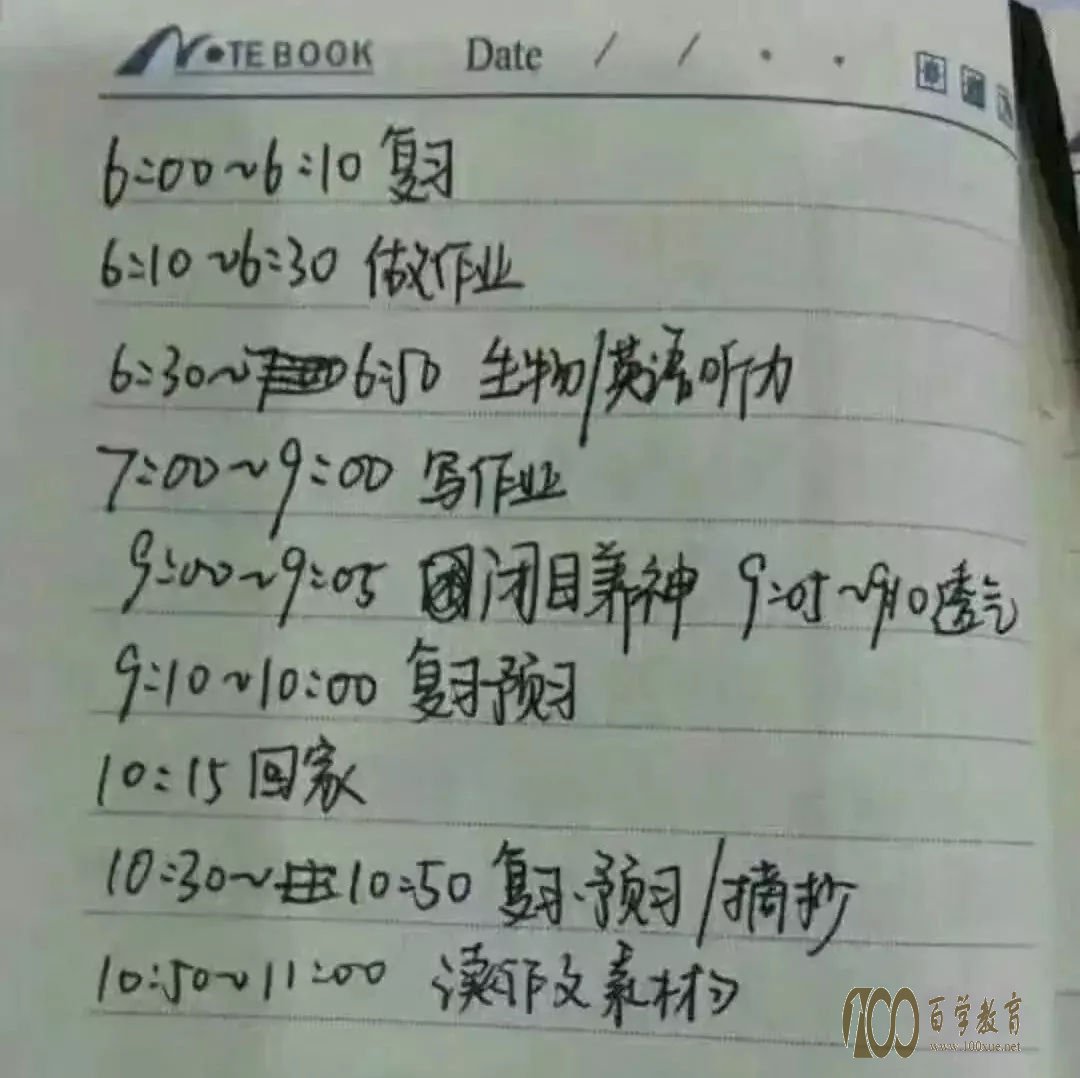 NOTEBOOK Date / / · ·
6:00~6:10 复习
6:10~6:30 做作业
6:30~6:50 生物/英语听力
7:00~9:00 写作业
9:00~9:05 闭目养神 9:05~9:10透气
9:10~10:00 复习预习
10:15回家
10:30~10:50 复习、预习/摘抄
10:50~11:00 读作文素材
100百学教育
www.100xue.net